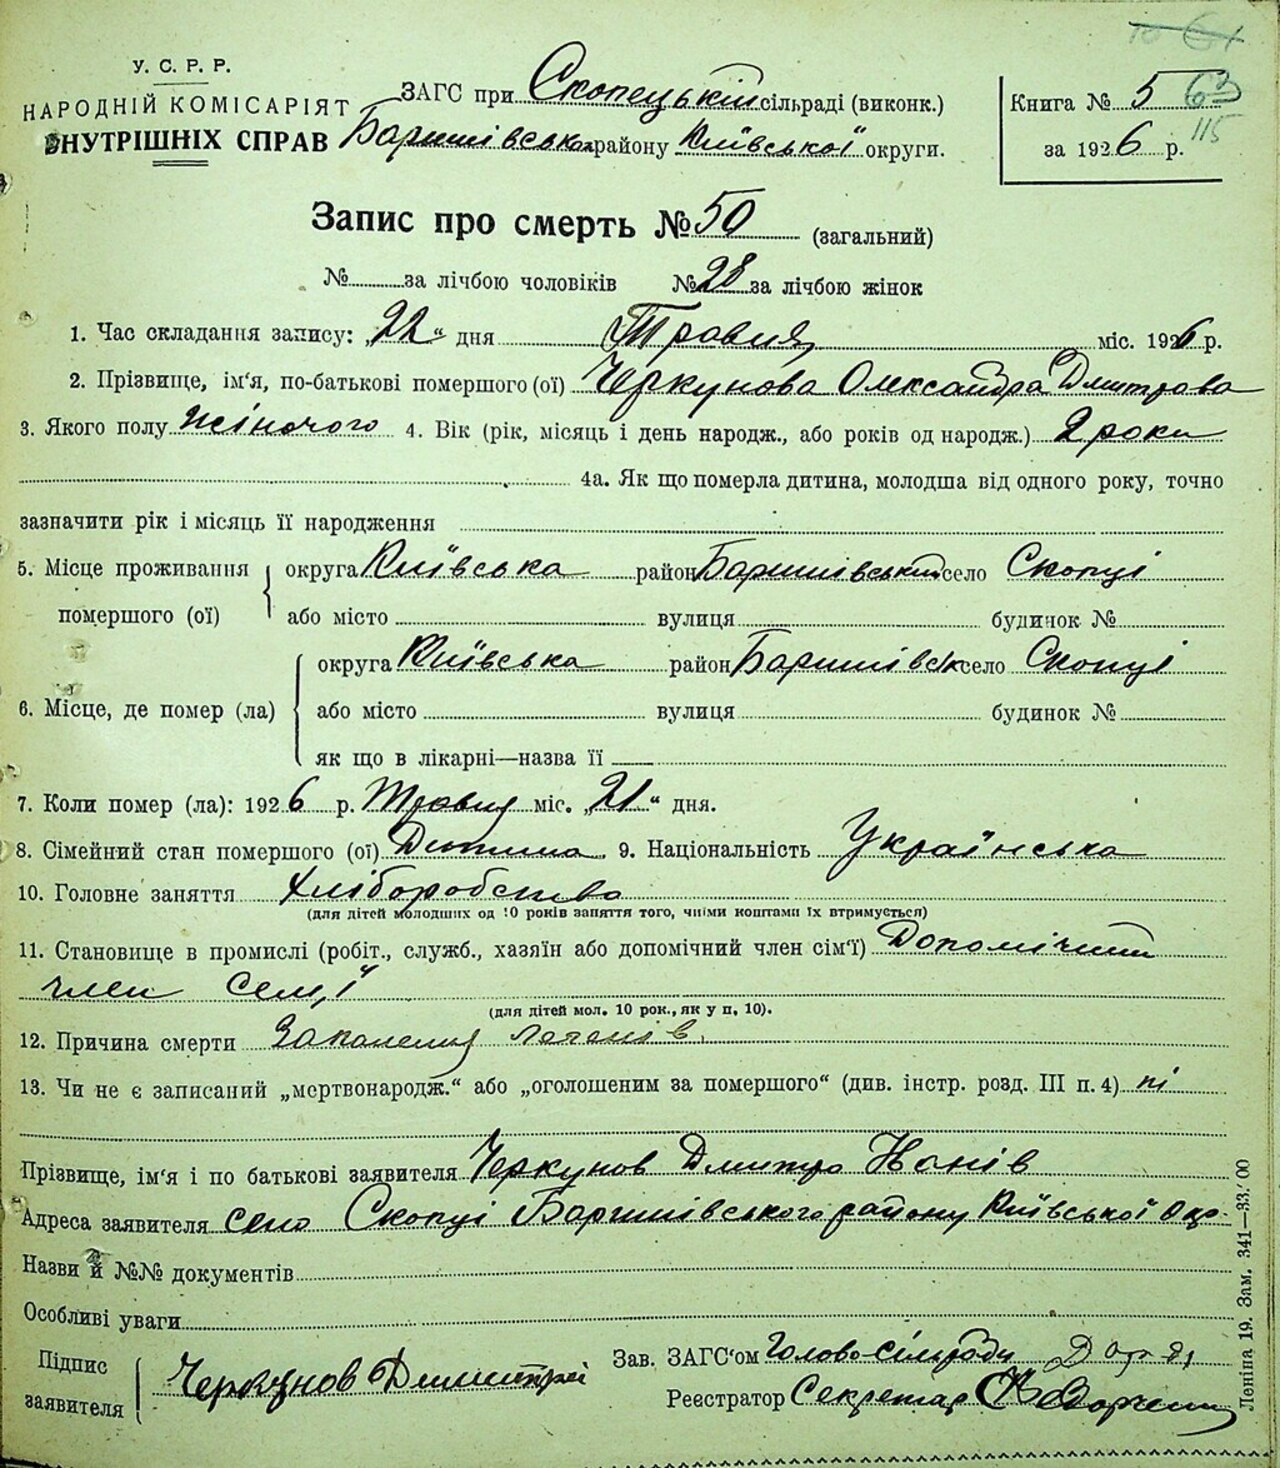 63
115
У. С. Р. Р.
НАРОДНІЙ КОМІСАРІЯТ
ВНУТРІШНІХ СПРАВ
ЗАГС при Скопецькій сільраді (виконк.)
Баришівська району Київської округи.
Книга № 5
за 1926 р.
Запис про смерть № 50 (загальний)
№ за лічбою чоловіків № 28 за лічбою жінок
1. Час складання запису: „22“ дня Травня міс. 1926 р.
2. Прізвище, ім'я, по-батькові помершого (ої) Черкунова Олександра Дмитрова
3. Якого полу жіночого 4. Вік (рік, місяць і день народж., або років од народж.) 2 роки
4а. Як що померла дитина, молодша від одного року, точно
зазначити рік і місяць її народження
5. Місце проживання помершого (ої) округа Київська район Баришівський село Скопці
або місто вулиця будинок №
6. Місце, де помер (ла) округа Київська район Баришівськ село Скопці
або місто вулиця будинок №
як що в лікарні—назва її
7. Коли помер (ла): 1926 р. Травня міс. „21“ дня.
8. Сімейний стан помершого (ої) Дитина 9. Національність Українська
10. Головне заняття Хліборобство
(для дітей молодших од 10 років заняття того, чиїми коштами їх втримується)
11. Становище в промислі (робіт., служб., хазяїн або допомічний член сім'ї) Допомічний
член семі
(для дітей мол. 10 рок., як у п. 10).
12. Причина смерти Запаления легенів.
13. Чи не є записаний „мертвонародж.“ або „оголошеним за помершого“ (див. інстр. розд. III п. 4) ні
Прізвище, ім'я і по батькові заявителя Черкунов Дмитро
Адреса заявителя село Скопці Баришівського району Київської Окр.
Назви й №№ документів
Особливі уваги
Підпис заявителя Черкунов Дмитрій
Зав. ЗАГС'ом Голова сільради
Реєстратор Секретар
Леніна 19. Зам. 341—33/00